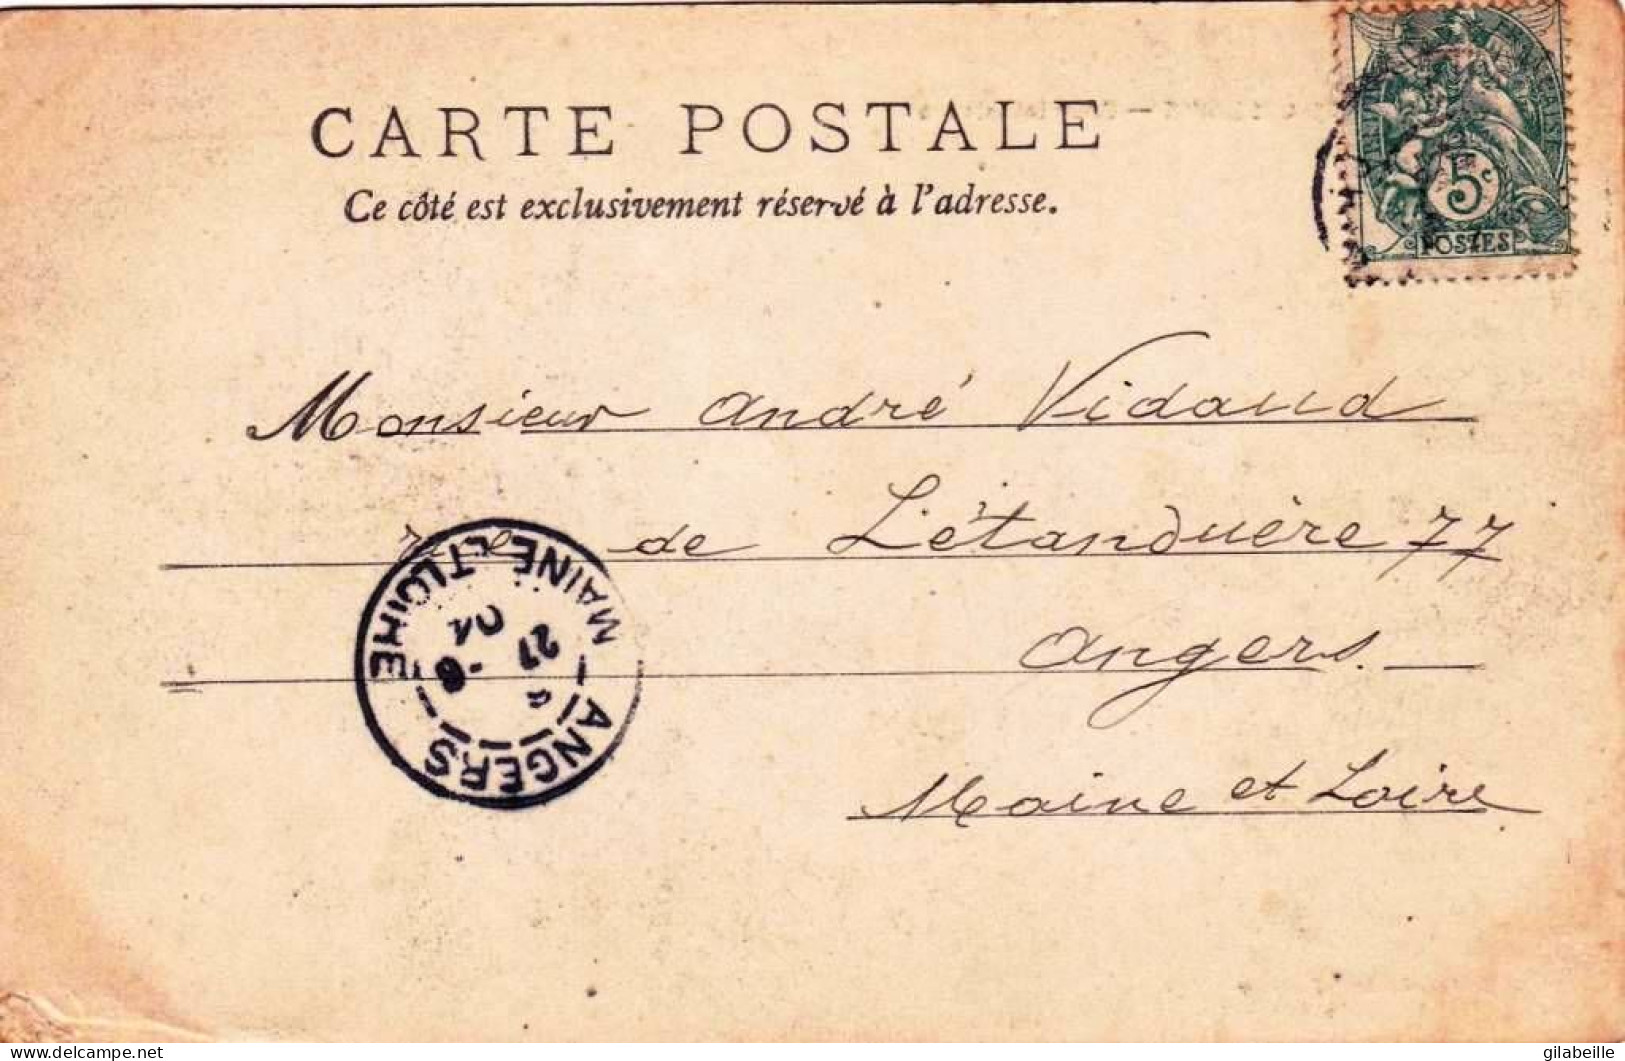 CARTE POSTALE
Ce côté est exclusivement réservé à l'adresse.
5c
POSTES
Monsieur André Vidaud
rue de L'étanduère 77
Angers.
Maine et Loire
ANGERS
MAINE ET LOIRE
27
-6
04
delcampe.net
gilabeille